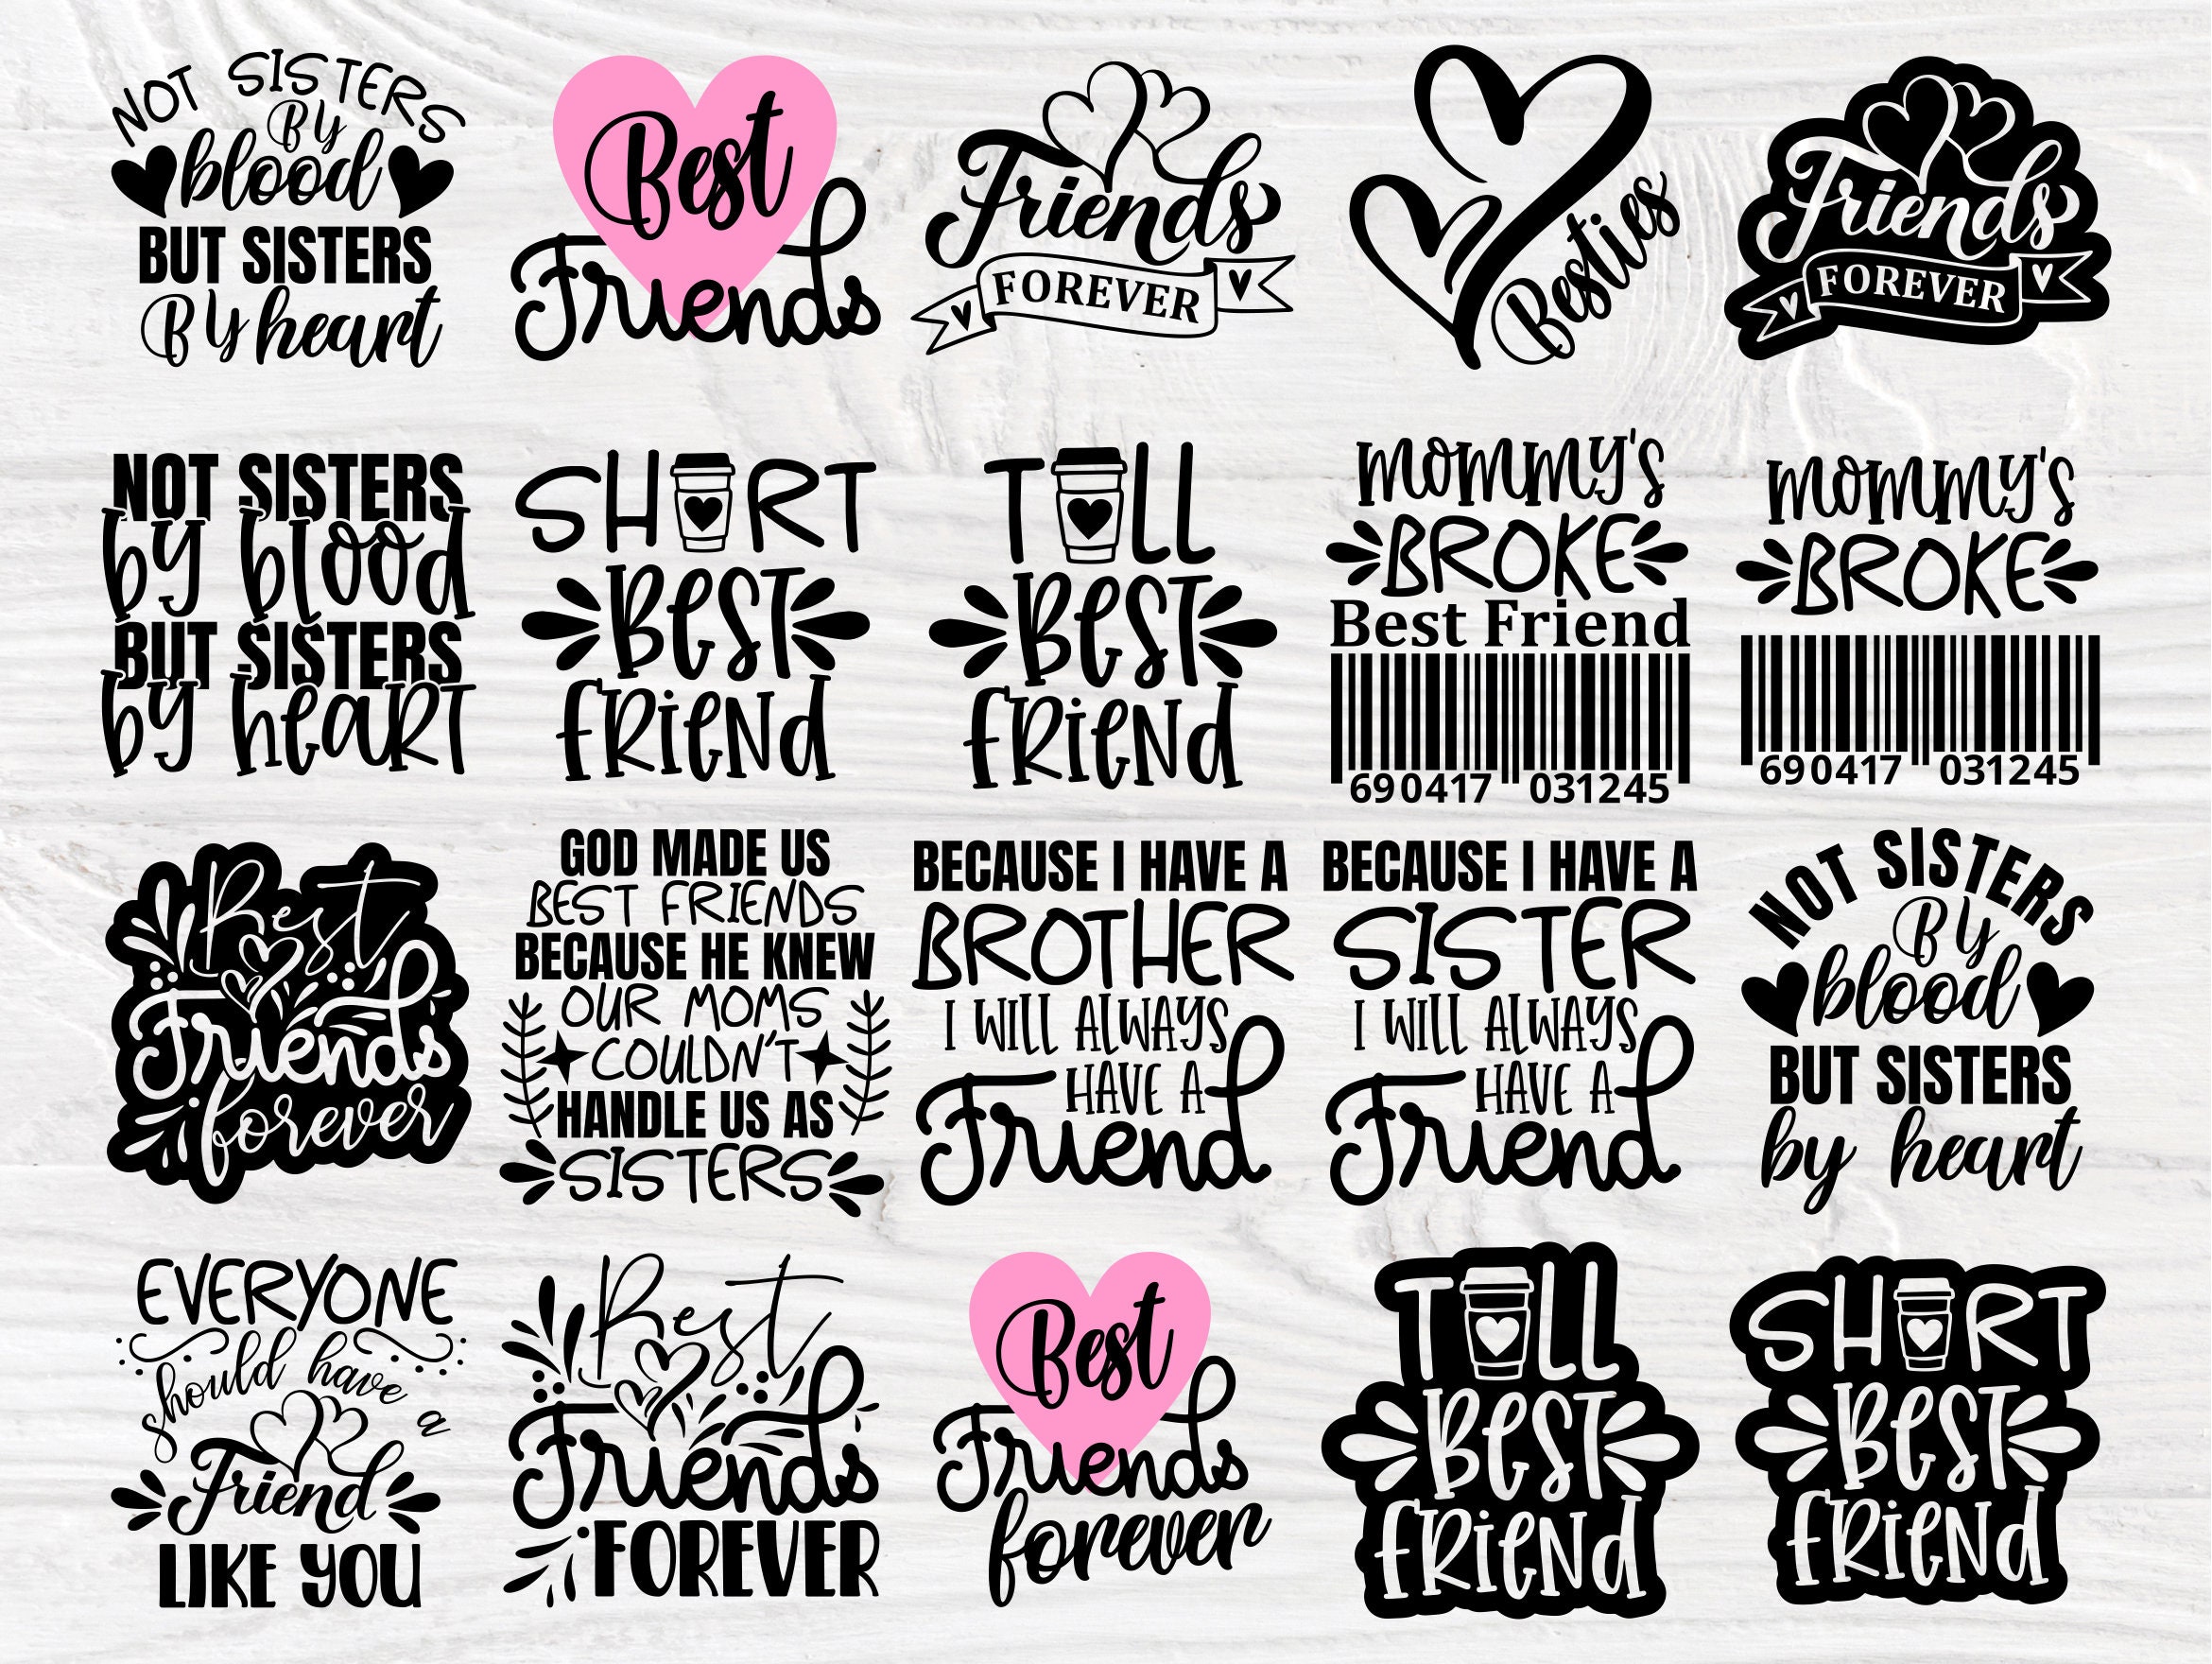 NOT SISTERS
By
blood
BUT SISTERS
By heart
Best
Friends
Friends
FOREVER
Besties
Friends
FOREVER
NOT SISTERS
by blood
BUT SISTERS
by heart
SHRT
BEST
FRIEND
TLL
BEST
FRIEND
mommy's
BROKE
Best Friend
690417 031245
mommy's
BROKE
690417 031245
Best
Friends
forever
GOD MADE US
BEST FRIENDS
BECAUSE HE KNEW
OUR MOMS
COULDN'T
HANDLE US AS
SISTERS
BECAUSE I HAVE A
BROTHER
I WILL ALWAYS
HAVE A
Friend
BECAUSE I HAVE A
SISTER
I WILL ALWAYS
HAVE A
Friend
NOT SISTERS
By
blood
BUT SISTERS
by heart
EVERYONE
should have a
Friend
LIKE YOU
Best
Friends
FOREVER
Best
Friends
forever
TLL
BEST
FRIEND
SHRT
BEST
FRIEND